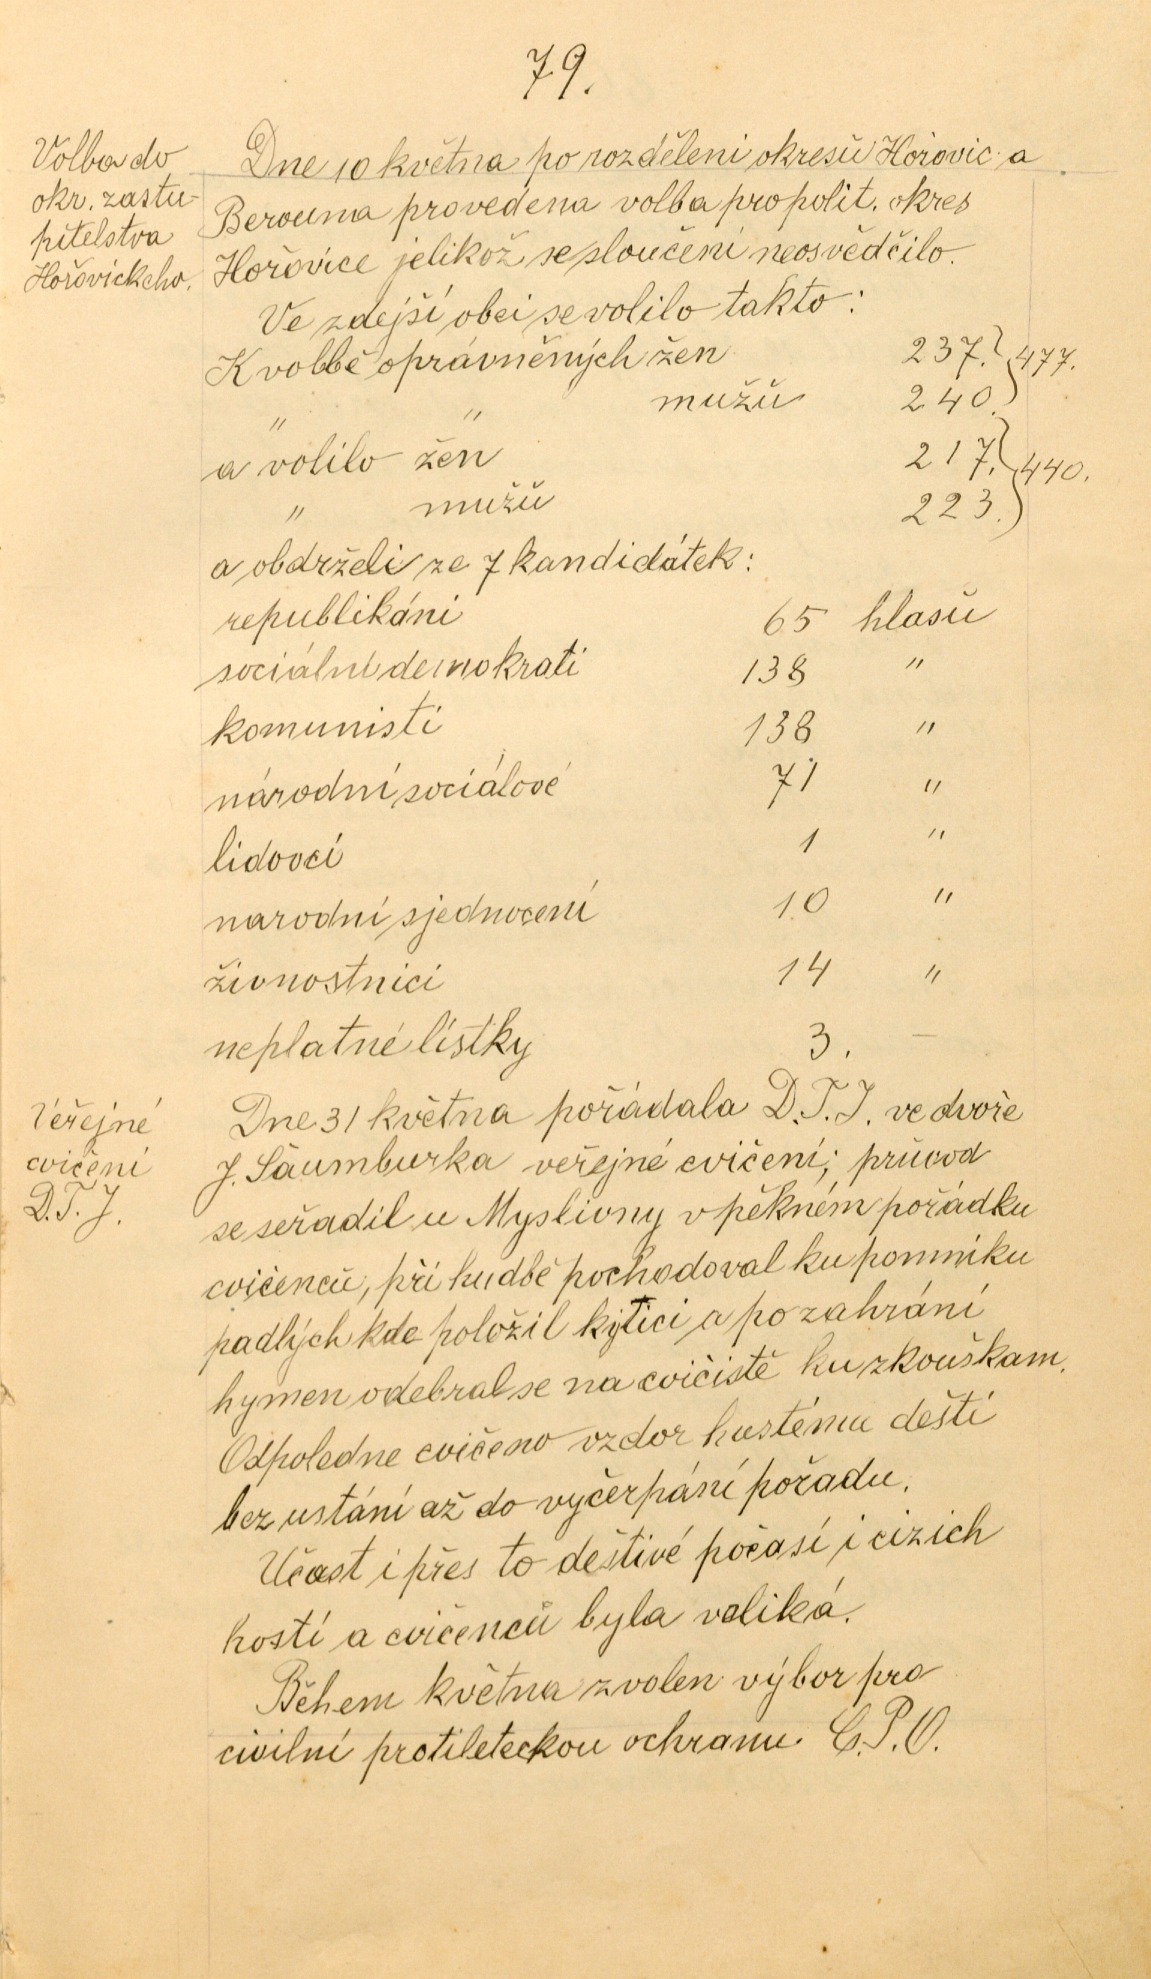 79.
Volba do
okr. zastu-
pitelstva
Hořovickeho.
Dne 10 května po rozděleni okresů Hořovic a
Berouna provedena volba pro polit. okres
Hořovice jelikož se sloučení neosvědčilo.
Ve zdejší obci se volilo takto:
K volbě oprávněných žen 237. } 477.
" " mužů 240.
a volilo žen 217. } 440.
" mužů 223.
a obdrželi ze 7 kandidátek:
republikáni 65 hlasů
sociální demokrati 138 "
komunisti 138 "
národní sociálové 71 "
lidovci 1 "
narodní sjednocení 10 "
živnostnici 14 "
neplatné lístky 3. —
Veřejné
cvičení
D.T.J.
Dne 31 května pořádala D.T.J. ve dvoře
J. Šaumburka veřejné cvičení; průvod
se seřadil u Myslivny v pěkném pořádku
cvičenců, při hudbě pochodoval ku pomníku
padlých kde položil kytici a po zahrání
hymen odebral se na cvičistě ku zkouškam.
Odpoledne cvičeno vzdor hustému dešti
bez ustání až do vyčerpání pořadu.
Učast i přes to deštivé počasí i cizich
hostí a cvičenců byla veliká.
Během května zvolen výbor pro
civilní protileteckou ochranu. C.P.O.